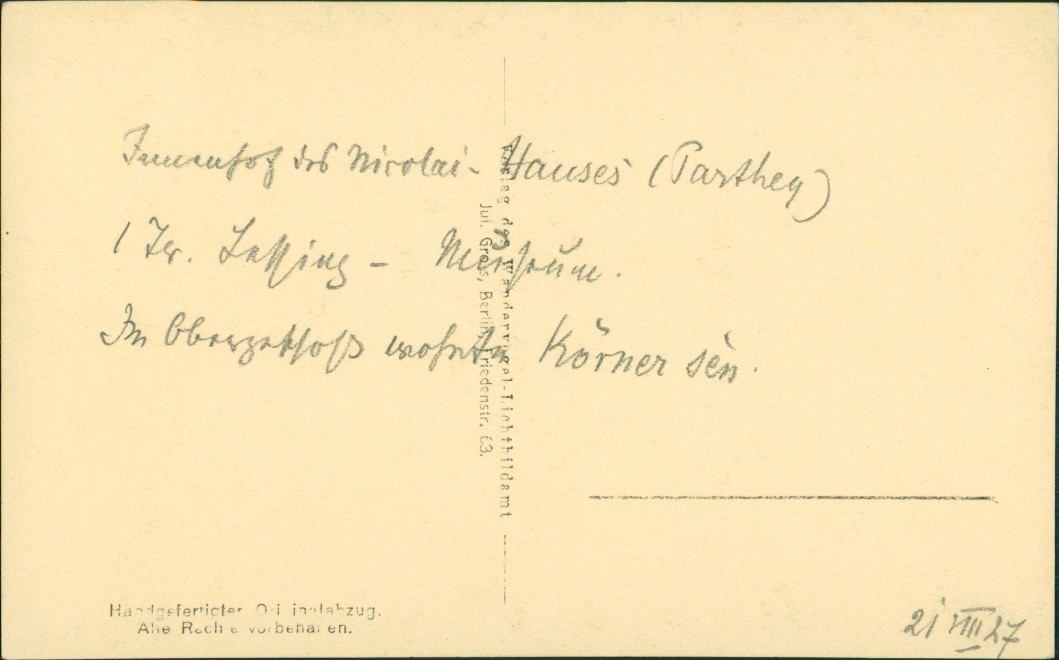 Innenhof des Nicolai-Hauses (Parthey)
1 Tr. Lessing - Museum.
Im Obergeschoß wohnte Körner sen.
Verlag des Wandervogel-Lichtbildamt
Jul. Groß, Berlin, Friedenstr. 63.
Handgefertigter Originalabzug.
Alle Rechte vorbehalten.
21 VIII 27